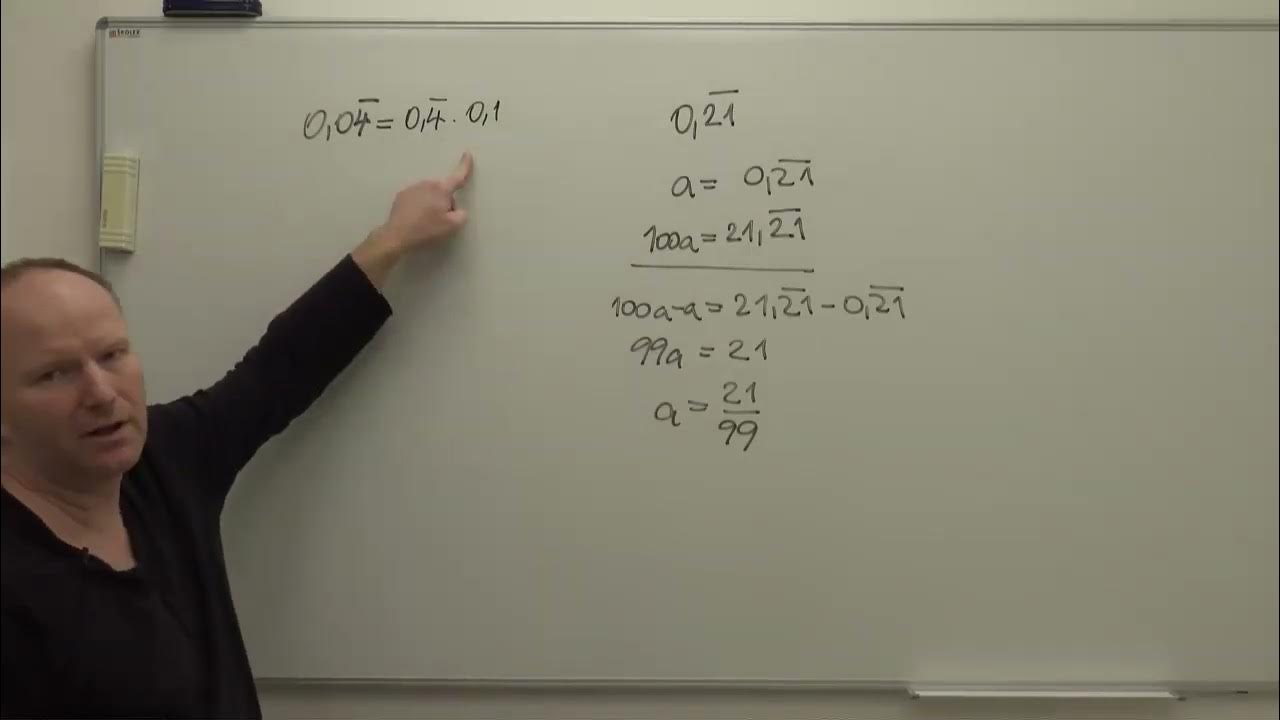 ŠKOLEX
0,04̅ = 0,4̅ · 0,1
0,2̅1̅
a = 0,2̅1̅
100a = 21,2̅1̅
100a-a = 21,2̅1̅ - 0,2̅1̅
99a = 21
a = 21/99